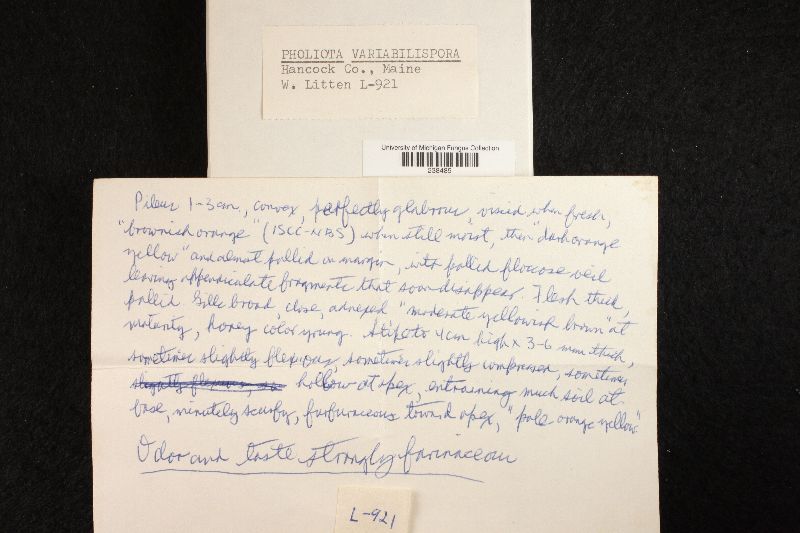 PHOLIOTA VARIABILISPORA
Hancock Co., Maine
W. Litten L-921
University of Michigan Fungus Collection
238485
Pileus 1-3 cm., convex, perfectly glabrous, viscid when fresh,
"brownish orange" (ISCC-NBS) when still moist, then "dark orange
yellow" and almost pallid on margin, with pallid floccose veil
leaving appendiculate fragments that soon disappear. Flesh thick,
pallid. Gills broad, close, adnexed "moderate yellowish brown" at
maturity, honey color young. Stipe to 4cm high x 3-6 mm thick,
sometimes slightly flexuous, sometimes slightly compressed, sometimes
slightly flexuous, hollow at apex, entraining much soil at
base, minutely scurfy, furfuraceous toward apex, "pale orange yellow"
Odor and taste strongly farinaceous
L-921